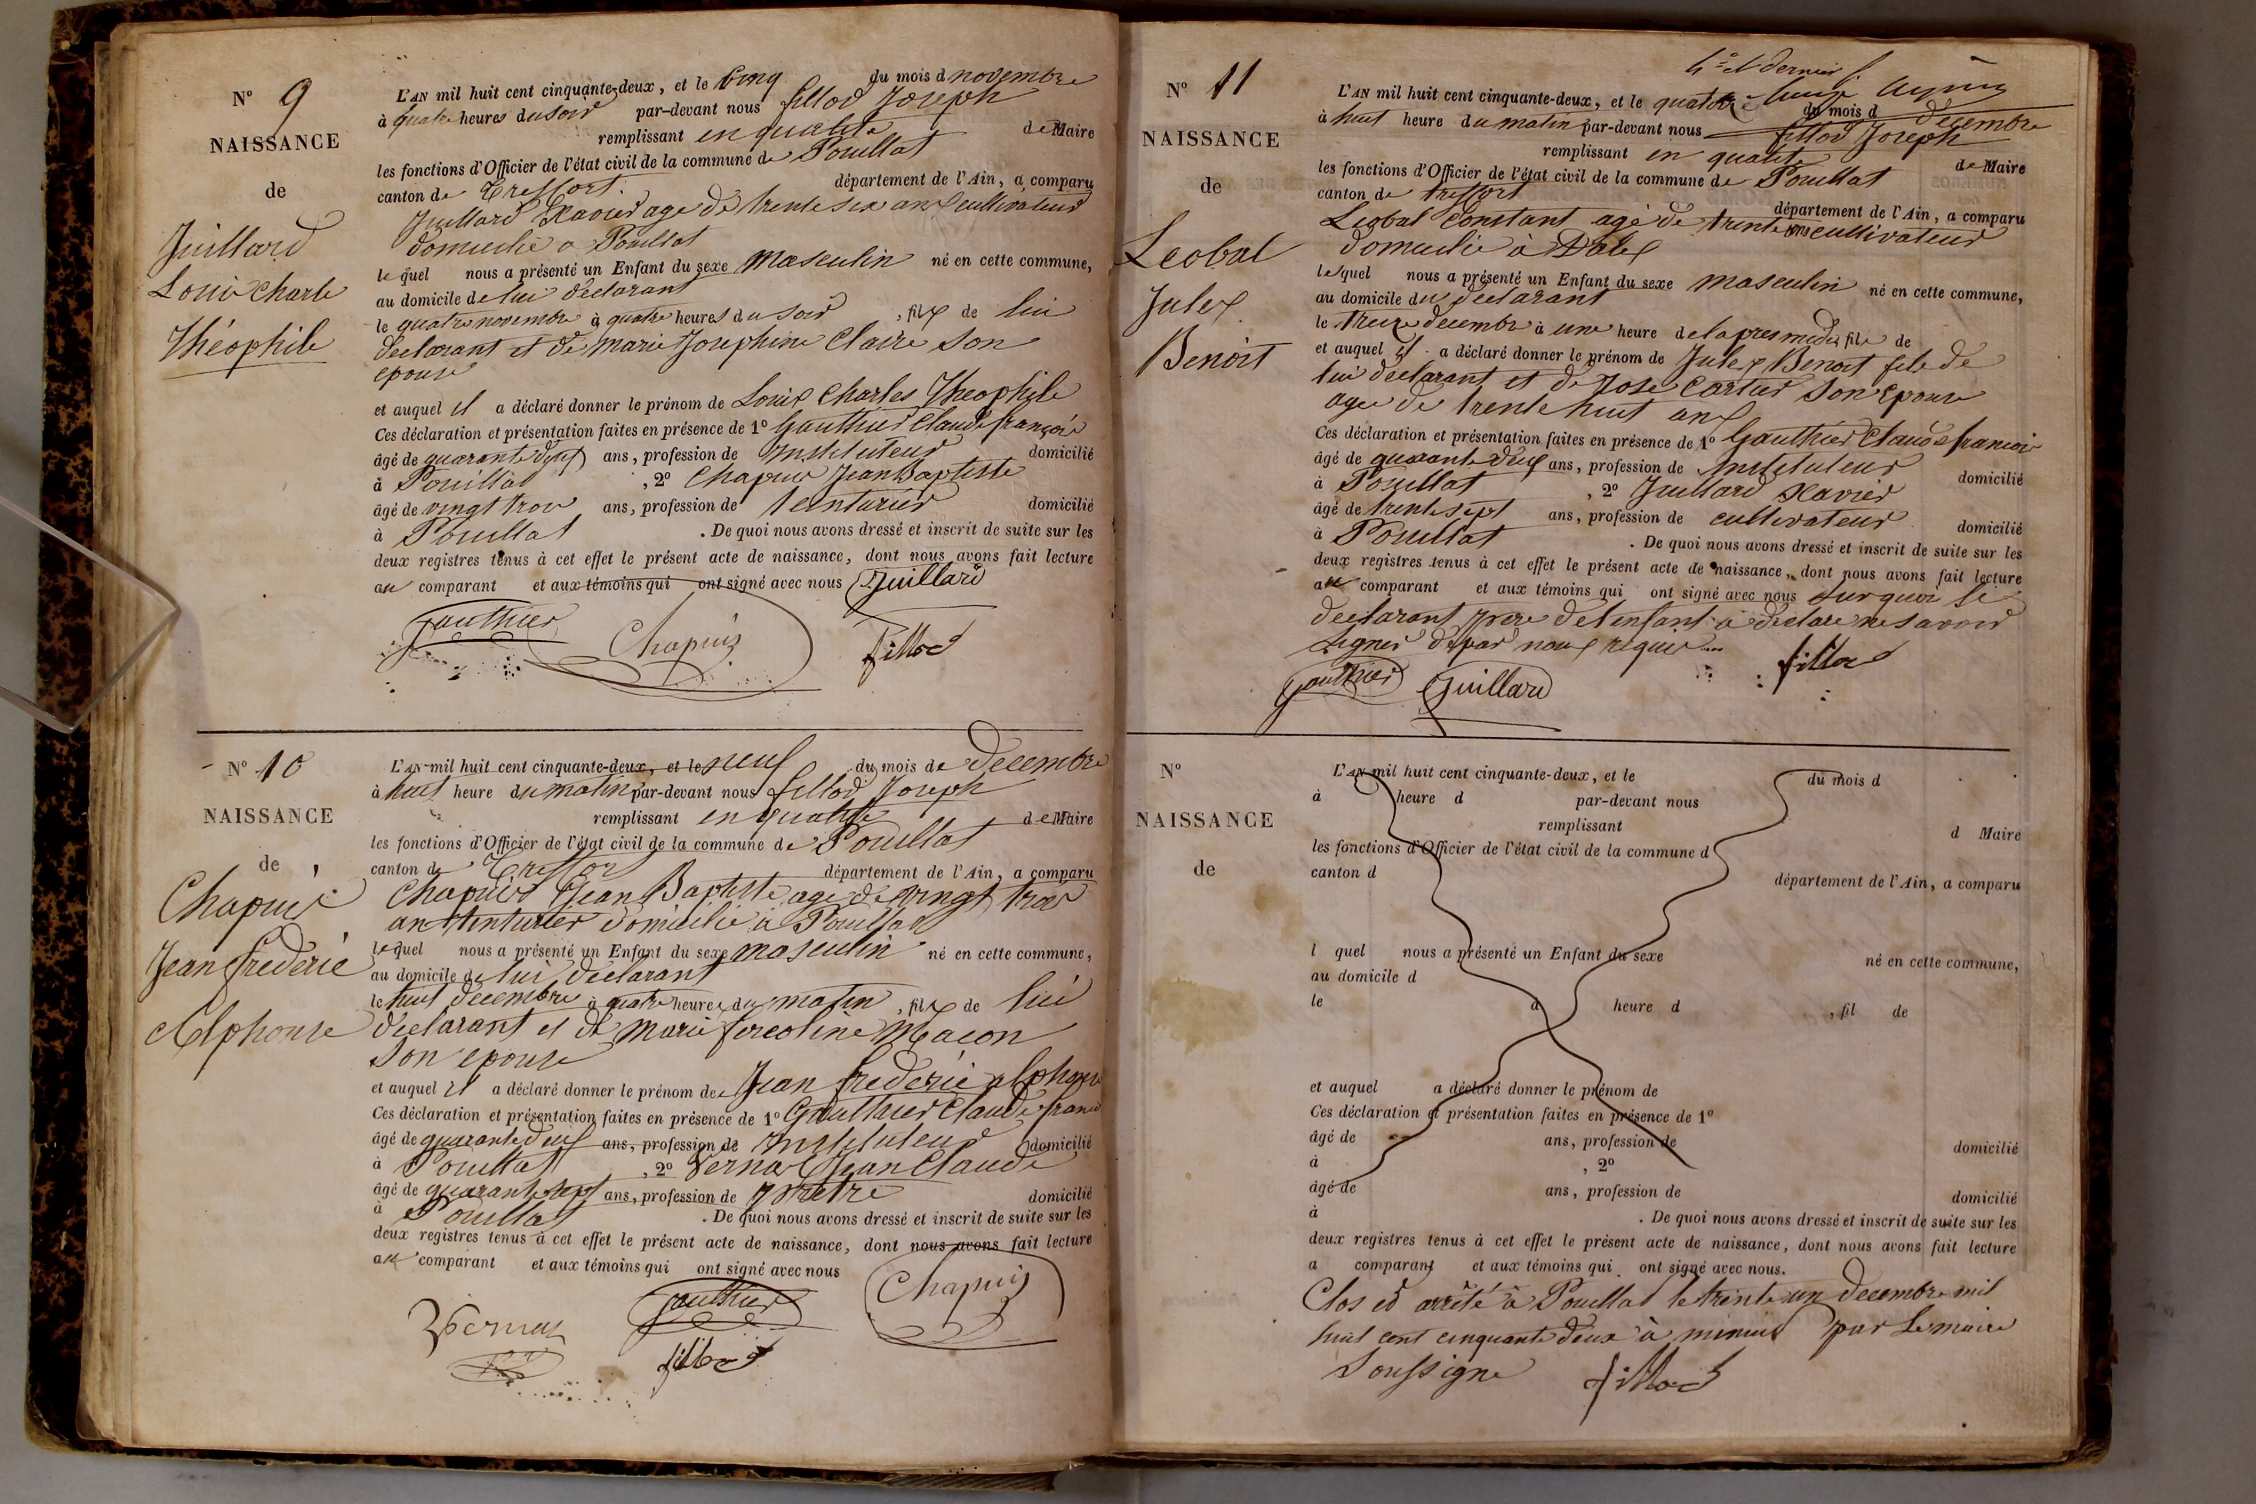 N° 9
NAISSANCE
de
Juillard
Louis Charle
Théophile
L'AN mil huit cent cinquante-deux, et le Cinq du mois d novembre
à quatre heures du soir par-devant nous fillod Joseph
remplissant en qualité de Maire
les fonctions d'Officier de l'état civil de la commune de Pouillat
canton de Treffort département de l'Ain, a comparu
Juillard Xavier age de trente six ans cultivateur
domicilié a Pouillat
lequel nous a présenté un Enfant du sexe masculin né en cette commune,
au domicile de lui déclarant
le quatre novembre à quatre heures du soir, fils de lui
declarant et de marie Josephine Claire son
epouse
et auquel il a déclaré donner le prénom de Louis Charles Theophile
Ces déclaration et présentation faites en présence de 1° Gauthier Claude françois
âgé de quarante deux ans, profession de Instituteur domicilié
à Pouillat, 2° Chapuis Jean Baptiste
âgé de vingt trois ans, profession de teinturier domicilié
à Pouillat. De quoi nous avons dressé et inscrit de suite sur les
deux registres tenus à cet effet le présent acte de naissance, dont nous avons fait lecture
au comparant et aux témoins qui ont signé avec nous Juillard
Gauthier Chapuis fillod
N° 10
NAISSANCE
de
Chapuis
Jean frederic
Alphonse
L'AN mil huit cent cinquante-deux, et le neuf du mois de decembre
à huit heure du matin par-devant nous fillod Joseph
remplissant en qualité de Maire
les fonctions d'Officier de l'état civil de la commune de Pouillat
canton de Treffort département de l'Ain, a comparu
Chapuis Jean Baptiste age de vingt trois
ans teinturier domicilié à Pouillat
lequel nous a présenté un Enfant du sexe masculin né en cette commune,
au domicile de lui declarant
le huit decembre à quatre heures du matin, fils de lui
declarant et de marie Macon
son epouse
et auquel il a déclaré donner le prénom de Jean frederic alphonse
Ces déclaration et présentation faites en présence de 1° Gauthier Claude franc
âgé de quarante deux ans, profession de Instituteur domicilié
à Pouillat, 2° Vernas Jean Claude
âgé de quarante sept ans, profession de pretre domicilié
à Pouillat. De quoi nous avons dressé et inscrit de suite sur les
deux registres tenus à cet effet le présent acte de naissance, dont nous avons fait lecture
au comparant et aux témoins qui ont signé avec nous
Vernas Gauthier Chapuis
fillod
N° 11
NAISSANCE
de
Leobal
Jules
Benoit
et dernier
L'AN mil huit cent cinquante-deux, et le quatorze du mois d decembre
à huit heure du matin par-devant nous fillod Joseph
remplissant en qualité de Maire
les fonctions d'Officier de l'état civil de la commune de Pouillat
canton de treffort département de l'Ain, a comparu
Leobal Constant agé de trente ans cultivateur
domicilié à
lequel nous a présenté un Enfant du sexe masculin né en cette commune,
au domicile du declarant
le treize decembre à une heure de lapres midi, fils de
et auquel il a déclaré donner le prénom de Jules Benoit fils de
lui declarant et de Jose Cartier son epouse
agee de trente huit ans
Ces déclaration et présentation faites en présence de 1° Gauthier Claude francois
âgé de quarante deux ans, profession de Instituteur domicilié
à Pouillat, 2° Juillard Xavier
âgé de trente sept ans, profession de cultivateur domicilié
à Pouillat. De quoi nous avons dressé et inscrit de suite sur les
deux registres tenus à cet effet le présent acte de naissance, dont nous avons fait lecture
au comparant et aux témoins qui ont signé avec nous surquoi le
declarant pere del enfant à declare ne savoir
signer de par nous requis
Gauthier Juillard fillod
N°
NAISSANCE
de
L'AN mil huit cent cinquante-deux, et le du mois d
à heure d par-devant nous
remplissant d Maire
les fonctions d'Officier de l'état civil de la commune d
canton d département de l'Ain, a comparu
l quel nous a présenté un Enfant du sexe né en cette commune,
au domicile d
le à heure d, fil de
et auquel a déclaré donner le prénom de
Ces déclaration et présentation faites en présence de 1°
âgé de ans, profession de domicilié
à, 2°
âgé de ans, profession de domicilié
à. De quoi nous avons dressé et inscrit de suite sur les
deux registres tenus à cet effet le présent acte de naissance, dont nous avons fait lecture
a comparant et aux témoins qui ont signé avec nous.
Clos et arrêté à Pouillat le trente un decembre mil
huit cent cinquante deux à minuit par le maire
Soussigne fillod